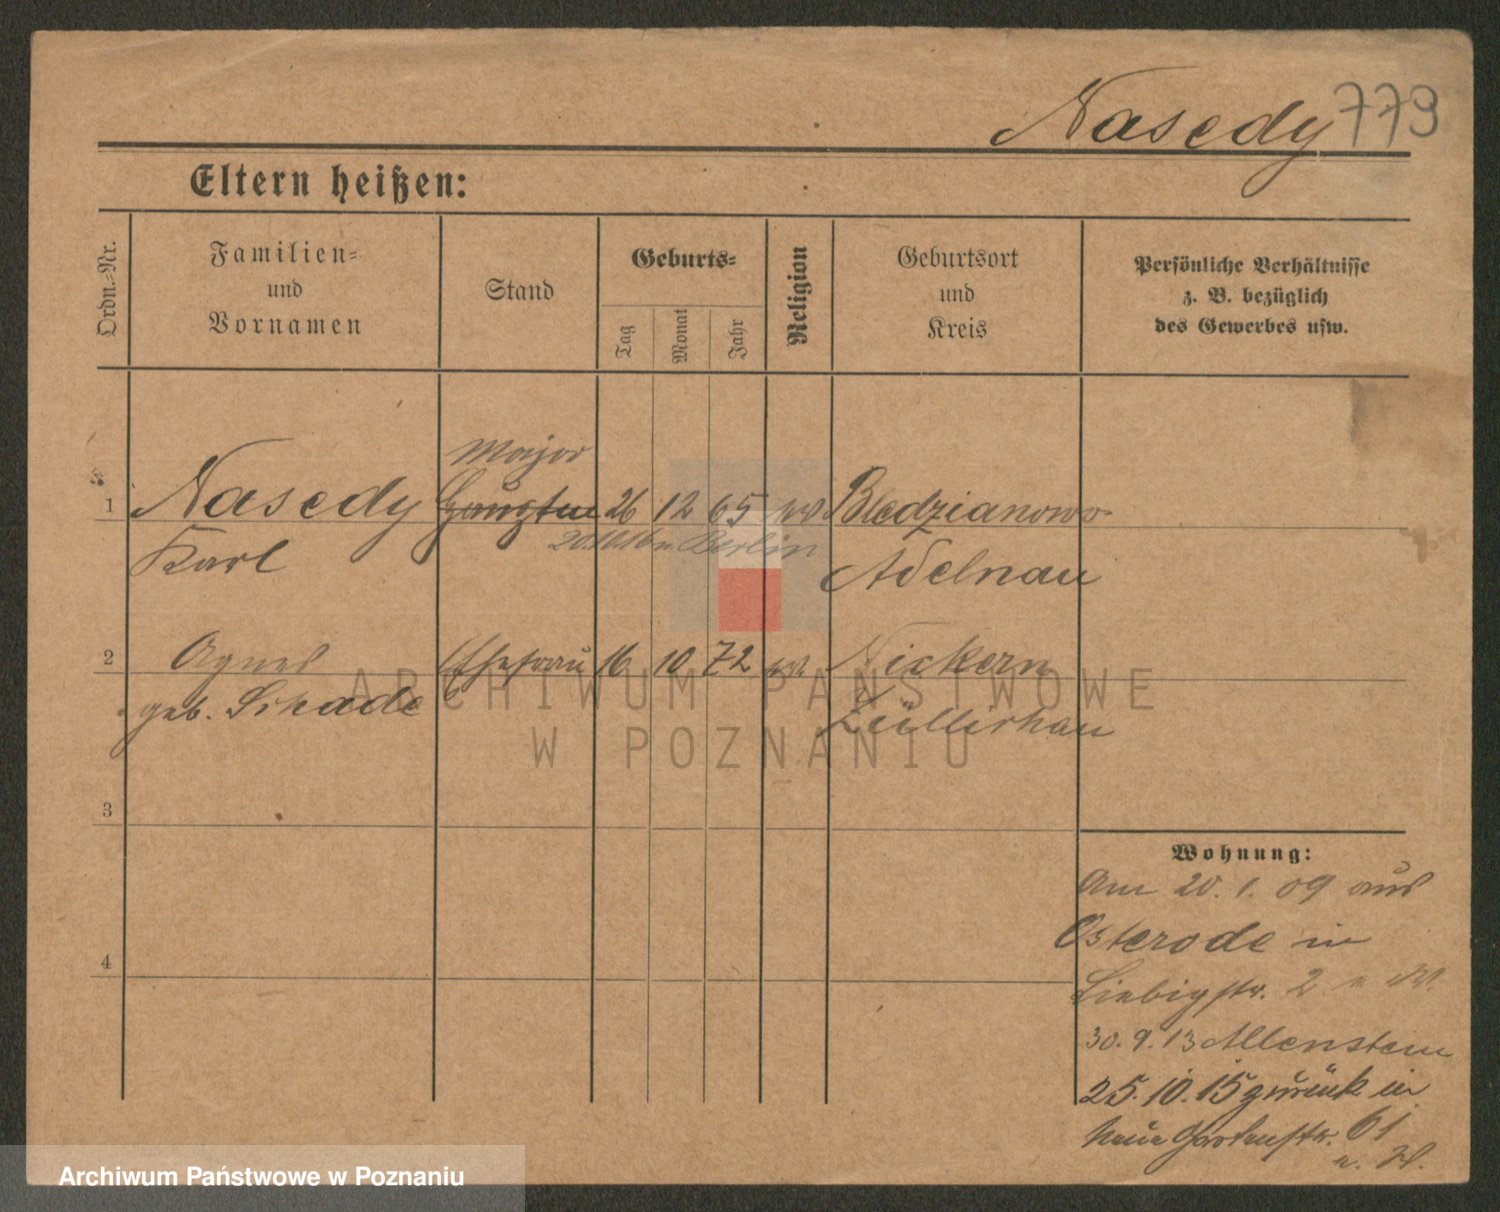 Nasedy 779
Eltern heißen:
Ordn.-Nr.
Familien-
und
Vornamen
Stand
Geburts-
Tag
Monat
Jahr
Religion
Geburtsort
und
Kreis
Persönliche Verhältnisse
z. B. bezüglich
des Gewerbes usw.
Major
1 Nasedy Hauptm 26 12 65 Bledzianowo
20.10.16 n. Berlin
Karl Adelnau
2 Agnes Ehefrau 16 10 72 Nickern
geb. Schade Züllichau
3
4
Wohnung:
Am 20. 1. 09 aus
Osterode in
Liebigstr. 2
30. 9. 13 Allenstein
25. 10. 15 zurück in
Neue Gartenstr. 61
ARCHIWUM PAŃSTWOWE
W POZNANIU
Archiwum Państwowe w Poznaniu